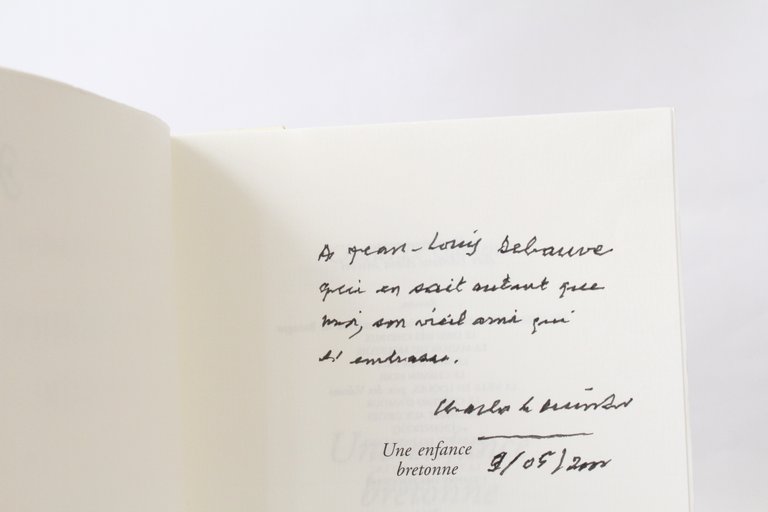 A Jean-Louis Debauve
qui en sait autant que
moi, son vieil ami qui
l'embrasse.
Charles Le Quintrec
Une enfance
bretonne
9/05/2000